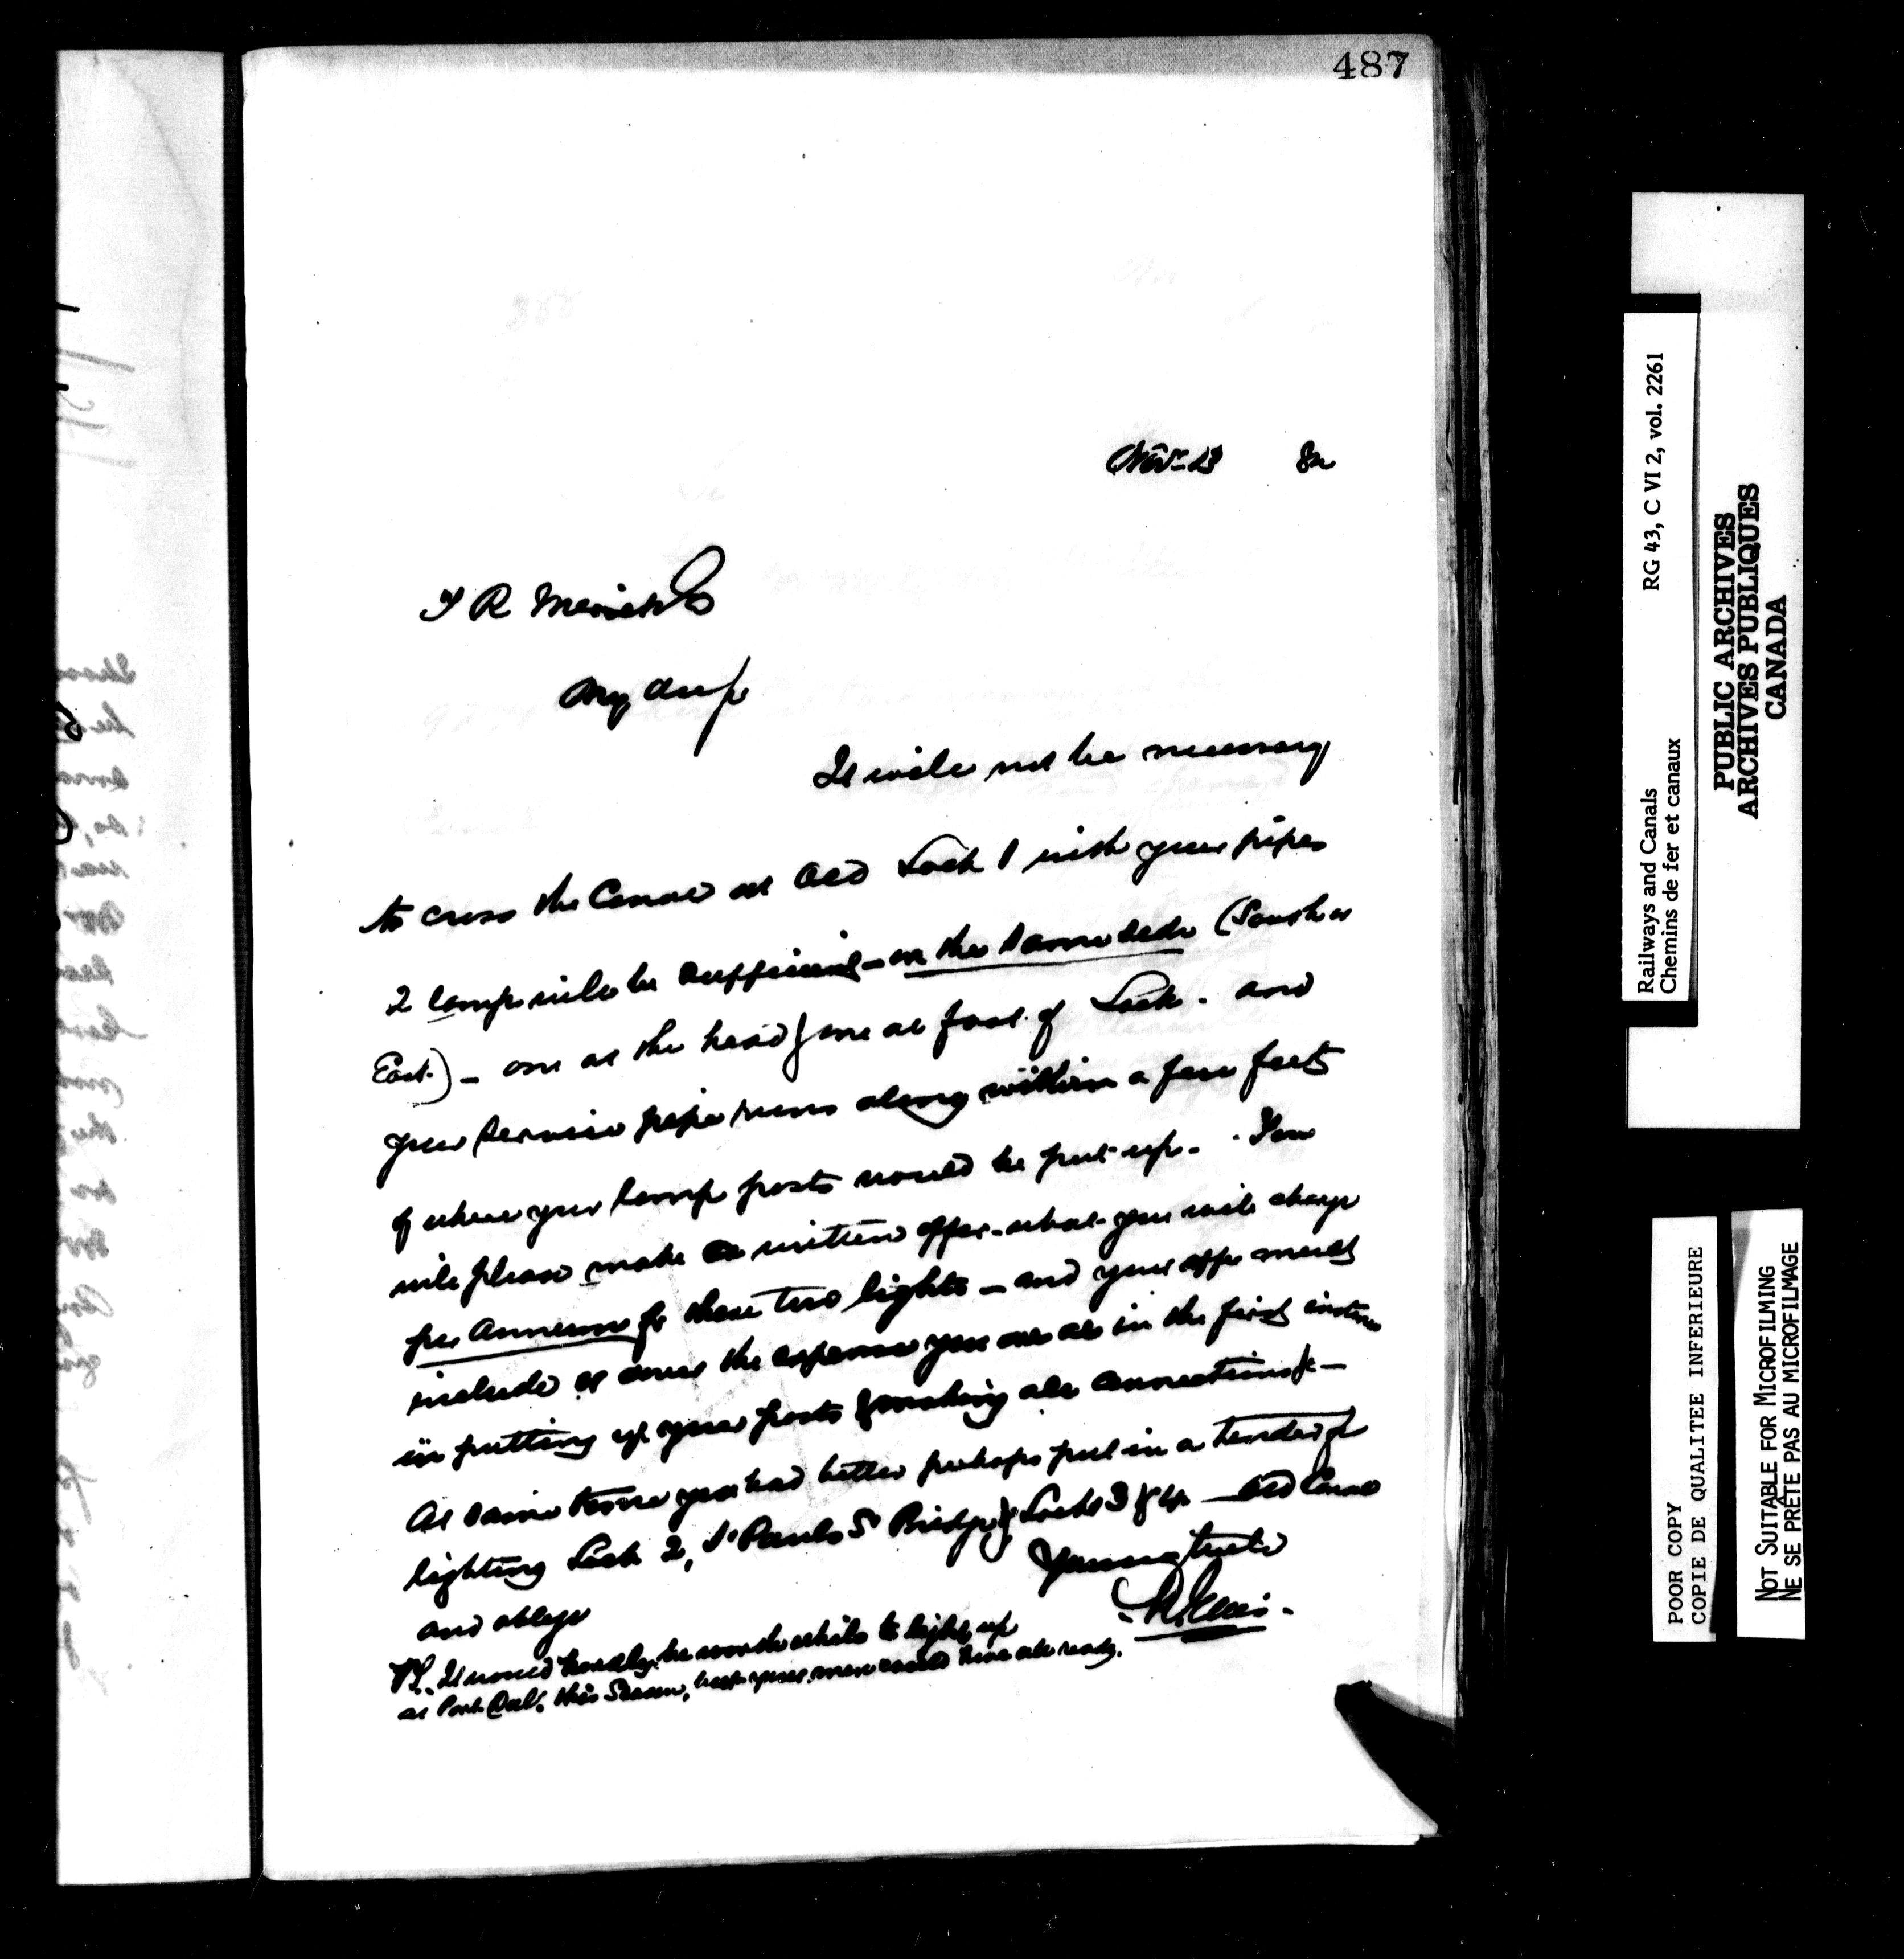 487
Novr 13 82
T R Merritt Esq
My dear Sir
It will not be necessary
to cross the Canal at Old Lock 1 with your pipes
2 lamps will be sufficient - on the same side (South or
East.) - one at the head & one at foot of Lock. and
your Service pipe runs along within a few feet
of where your lamp posts would be put up. - You
will please make a written offer - what you will charge
per Annum for these two lights - and your offer must
include or cover the expense you are at in the first instance
in putting up your posts & making all connections &c -
At same time you had better perhaps put in a tender for
lighting Lock 2, St Pauls St Bridge, & Locks 3 & 4 - Old Canal
and oblige
Yours truly
W. Ellis.
PS. It would hardly be worth while to light up
at Port Dal. this Season, but your men could have all ready.
Railways and Canals RG 43, C VI 2, vol. 2261
Chemins de fer et canaux
PUBLIC ARCHIVES
ARCHIVES PUBLIQUES
CANADA
POOR COPY
COPIE DE QUALITEE INFERIEURE
NOT SUITABLE FOR MICROFILMING
NE SE PRÊTE PAS AU MICROFILMAGE